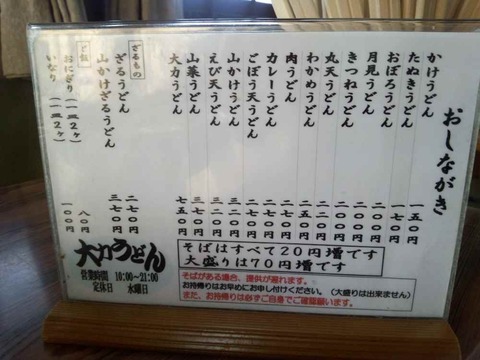 おしながき
かけうどん 一五〇円
たぬきうどん 一七〇円
おぼろうどん
月見うどん
きつねうどん
丸天うどん
わかめうどん
肉うどん
カレーうどん
ごぼう天うどん
山かけうどん
えび天うどん
山菜うどん
大力うどん 七五〇円
ざるもの
ざるうどん 二七〇円
山かけざるうどん 三七〇円
ご飯
おにぎり（一皿2ヶ） 八〇円
いなり（一皿2ヶ） 一〇〇円
大力うどん
営業時間 10:00~21:00
定休日 水曜日
そばはすべて20円増です
大盛りは70円増です
そばがある場合、提供が遅れます。
お持帰りはお早めにお申し付けください。（大盛りは出来ません）
また、お持帰りは必ずご自身でご確認願います。